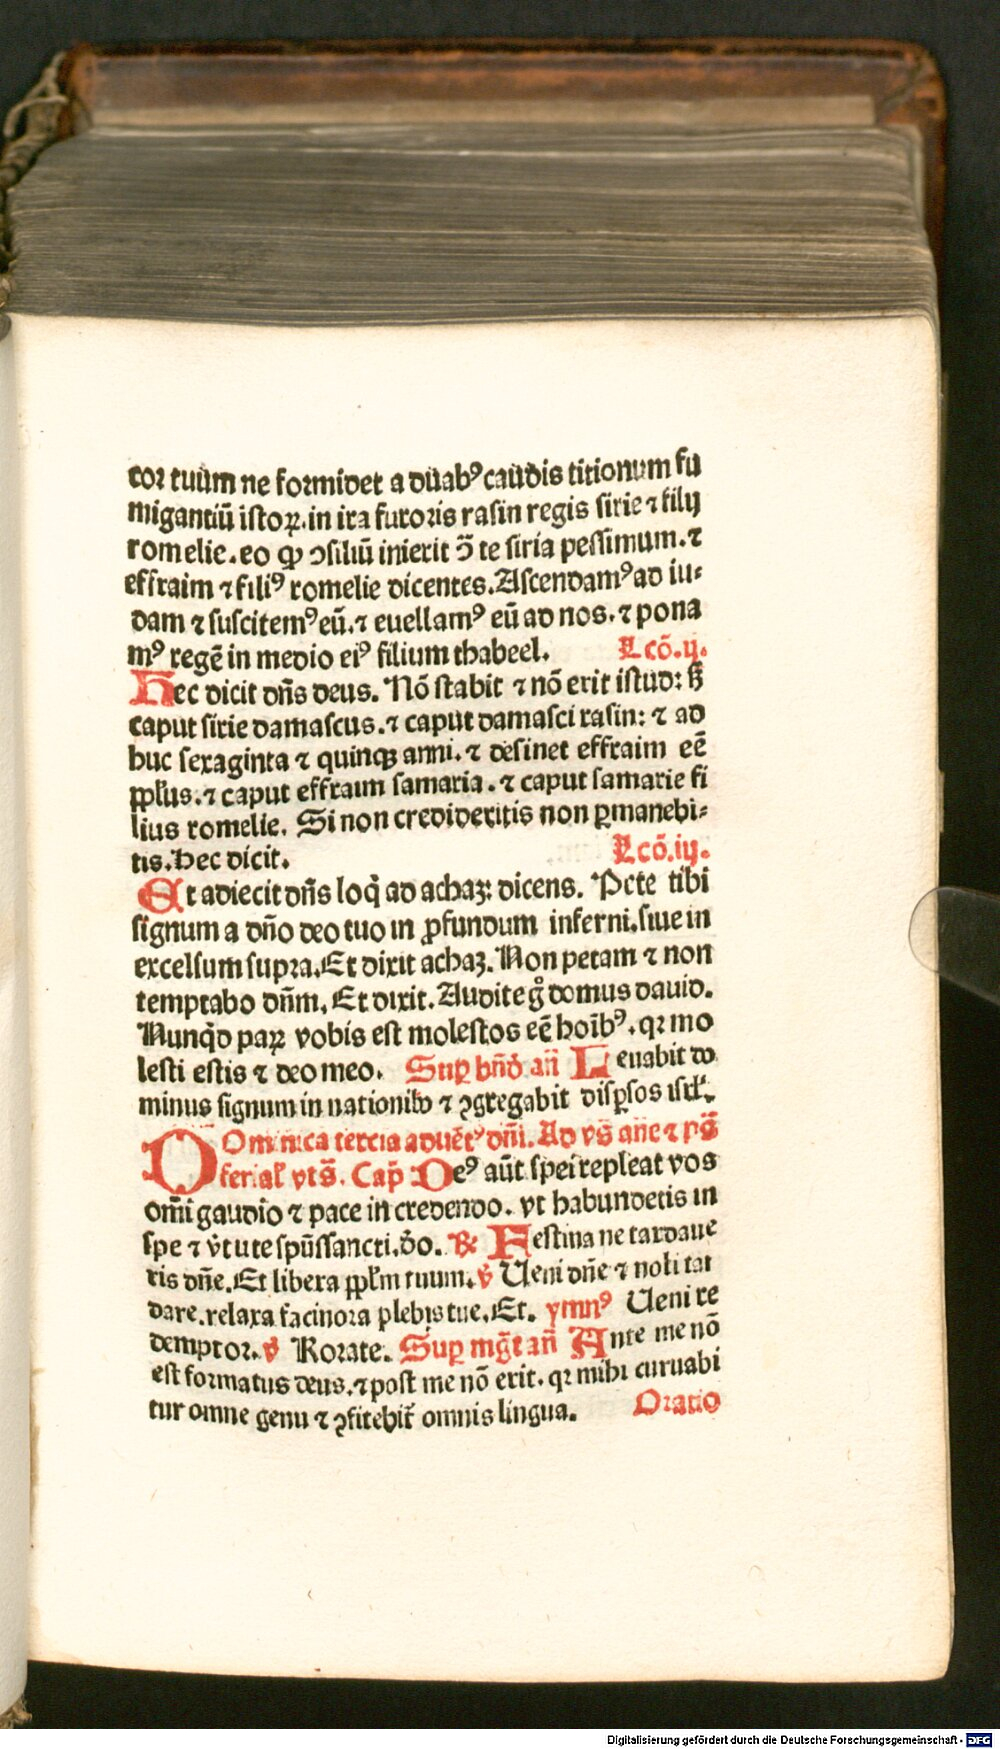 cor tuum ne formidet a duabꝰ caudis titionum fu
migantiū istoꝝ. in ira furoris rasin regis sirie ⁊ filij
romelie. eo ꝙ ↄsiliū inierit ↄ̄ te siria pessimum. ⁊
effraim ⁊ filiꝰ romelie dicentes. Ascendamꝰ ad iu⸗
dam ⁊ suscitemꝰ eū. ⁊ euellamꝰ eū ad nos. ⁊ pona
mꝰ regē in medio eiꝰ filium thabeel. Lcō. ij.
Hec dicit dn̄s deus. Nō stabit ⁊ nō erit istud: ſꝫ
caput sirie damascus. ⁊ caput damasci rasin: ⁊ ad
huc sexaginta ⁊ quinqꝫ anni. ⁊ desinet effraim eē
ppl̄us. ⁊ caput effraim samaria. ⁊ caput samarie fi
lius romelie. Si non credideritis non ꝑmanebi⸗
tis. Hec dicit. Lcō. iij.
Et adiecit dn̄s loq̄ ad achaz: dicens. Pete tibi
signum a dn̄o deo tuo in ꝓfundum inferni. siue in
excelsum supra. Et dixit achaz. Non petam ⁊ non
temptabo dn̄m. Et dixit. Audite gͦ domus dauid.
Nunqͥd paꝝ vobis est molestos eē hoīb̄ꝰ. qꝛ mo
lesti estis ⁊ deo meo. Suꝑ bn̄d̄ an̄ Leuabit do
minus signum in nationibꝰ ⁊ ꝯgregabit disꝑsos isrl̄.
DOminica tercia aduēt̉ dn̄i. Ad vs̄ an̄e ⁊ ps̄
ferial̄ vts̄. Cap̄ Deꝰ aūt spei repleat vos
om̄i gaudio ⁊ pace in credendo. vt habundetis in
spe ⁊ v̉tute spūssancti. d̄o. ℟ Festina ne tardaue
ris dn̄e. Et libera ppl̄m tuum. ℣ Ueni dn̄e ⁊ noli tar
dare. relaxa facinora plebis tue. Et. ymnꝰ Ueni re
demptor. ℣ Rorate. Suꝑ mḡt an̄ Ante me nō
est formatus deus. ⁊ post me nō erit. qꝛ mihi curuabi
tur omne genu ⁊ ꝯfitebit̉ omnis lingua. Oratio
Digitalisierung gefördert durch die Deutsche Forschungsgemeinschaft - DFG